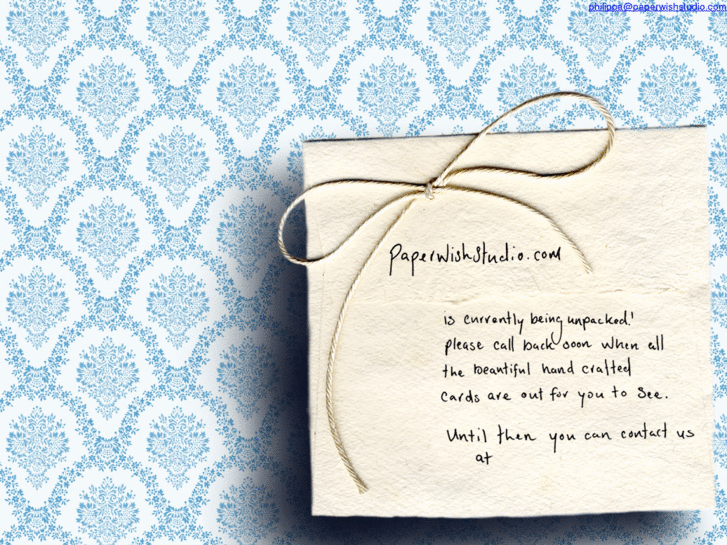 philippa@paperwishstudio.com
paperwishstudio.com
is currently being unpacked!
please call back soon when all
the beautiful hand crafted
cards are out for you to see.
Until then you can contact us
at